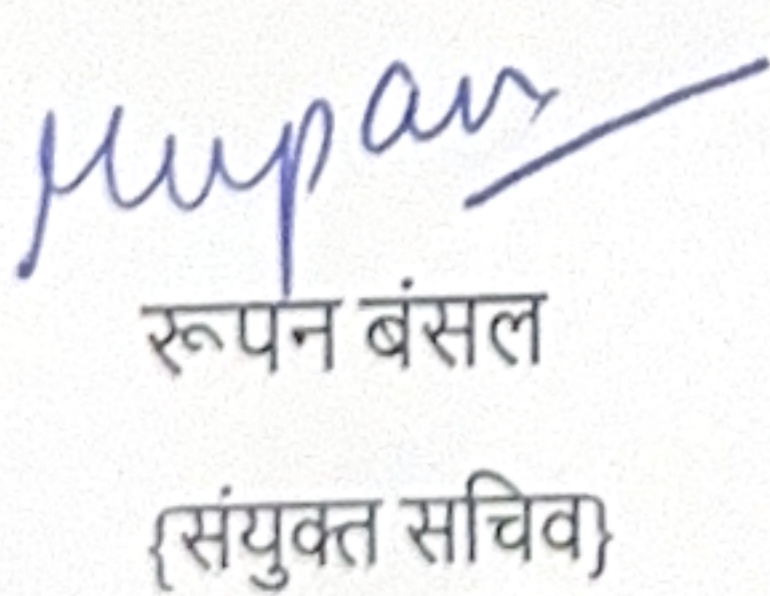 Rupan
रूपन बंसल
{संयुक्त सचिव}